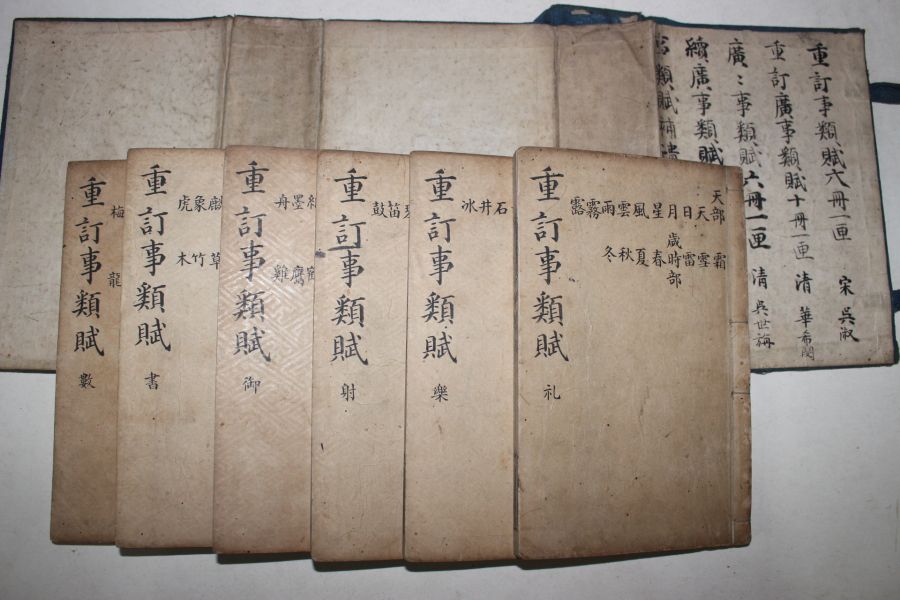 重訂事類賦六冊一匣 宋 吳淑
重訂廣事類賦十冊一匣 清 華希閔
廣〻事類賦六冊一匣 清 吳世旃
續廣事類賦
類賦補遺
天部 天 日 月 星 風 雲 雨 霧 露
霜 雪 雷
歲時部 春 夏 秋 冬
重訂事類賦 礼
石 井 冰
重訂事類賦 樂
笛 鼓
重訂事類賦 射
墨 舟
鷹 雞
重訂事類賦 御
象 虎
草 竹 木
重訂事類賦 書
梅
龍
重訂事類賦 數